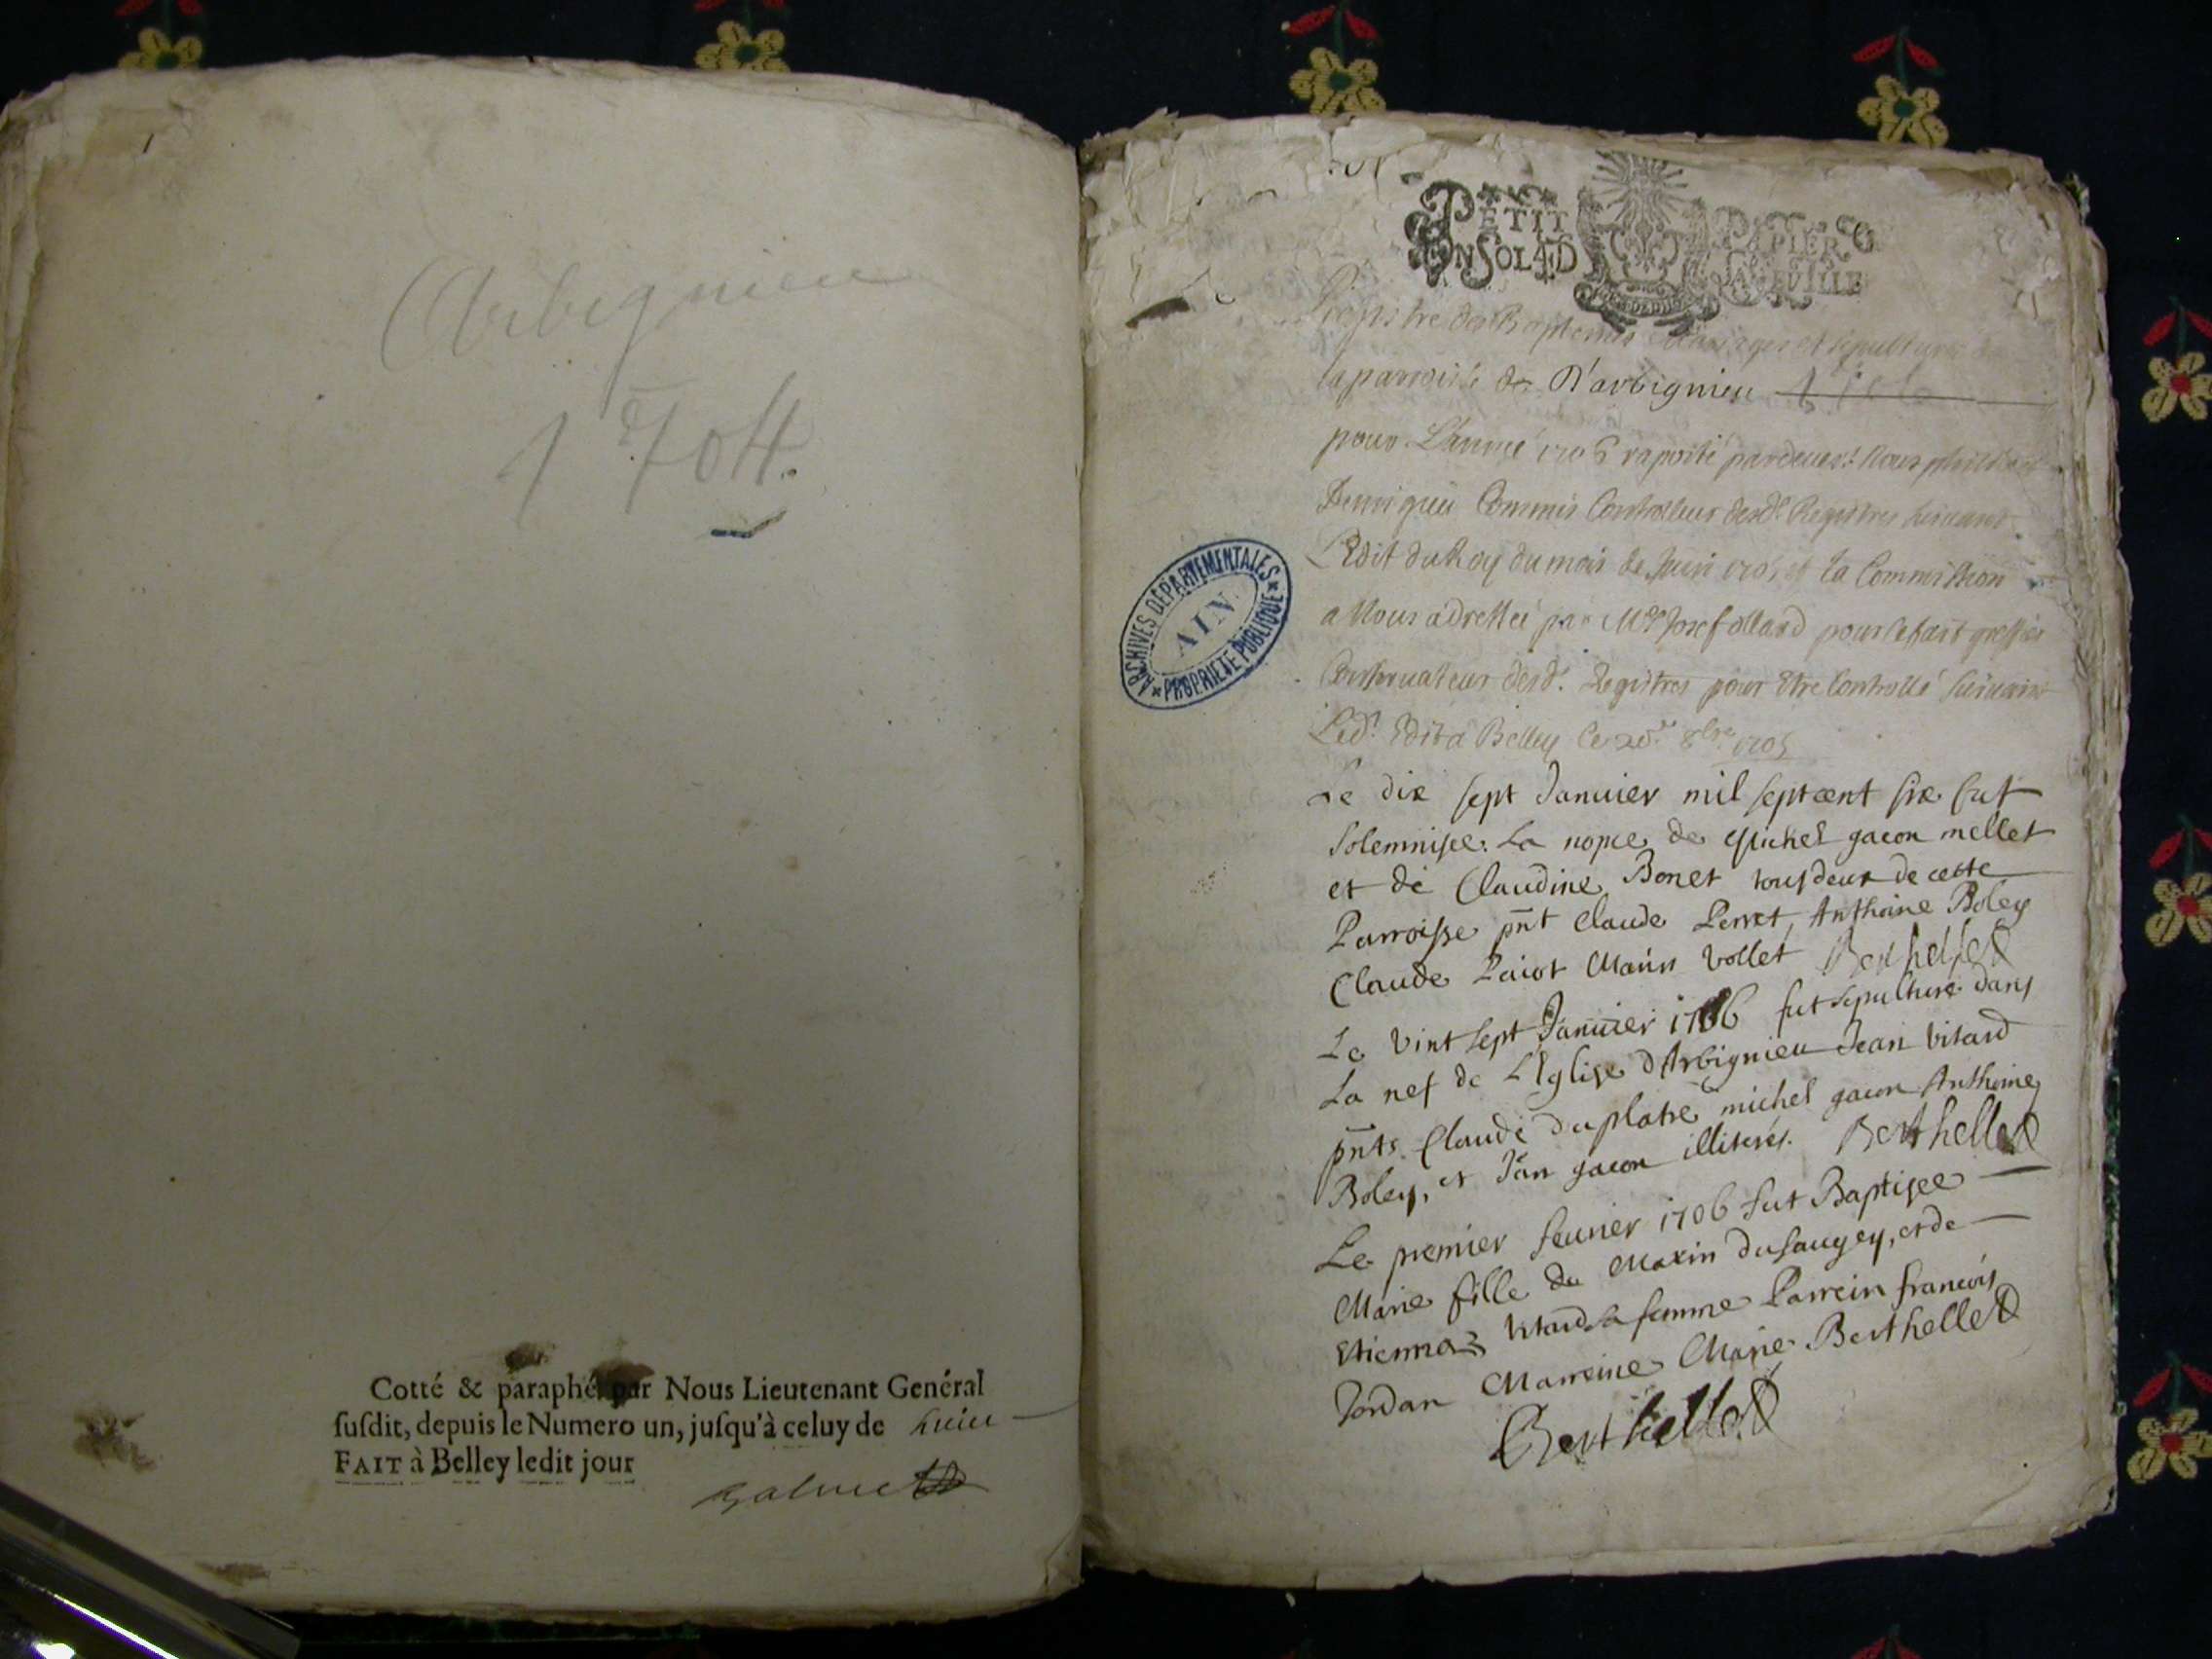 Arbignieu
1704.
Cotté & paraphé par Nous Lieutenant Genéral
susdit, depuis le Numero un, jusqu'à celuy de huiu
FAIT à Belley ledit jour
PETIT PAPIER
ARCHIVES DÉPARTEMENTALES
AIN
PROPRIETE PUBLIQUE
Registre des Baptemes Mariages et sepultures
la parroisse de D'arbignieu
pour L'année 1706 raporté pardevant Nous
Commis Controlleur desd. Registres suivant
L'Edit du Roy du mois de Juin 1705 et la Commission
a Nous adressée par Me Josef ollard pour le fait greffier
Conservateur desd. Registres pour Etre Controllé suivant
Led. Edit a Belley le 8bre 1705
Le dix sept Januier mil septcent six fut
solemnisee La nopce de Michel gacon mellet
et de Claudine Bonet tous deux de cette
Parroisse pnt Claude Perret, Anthoine Boley
Claude Paiot Marin Vollet Berthelled
Le vint sept Januier 1706 fut sepulturé dans
La nef de L'Eglise d'Arbignieu Jean Vitard
pnts Claude duplatre michel gacon Anthoine
Boley, et Jan gacon illiterés. Berthelled
Le premier feurier 1706 fut Baptisee
Marie fille de Marin dusaugey, et de
Etienna Vitard sa femme Parrein francois
Jordan Marreine Marie Berthelled
Berthelled